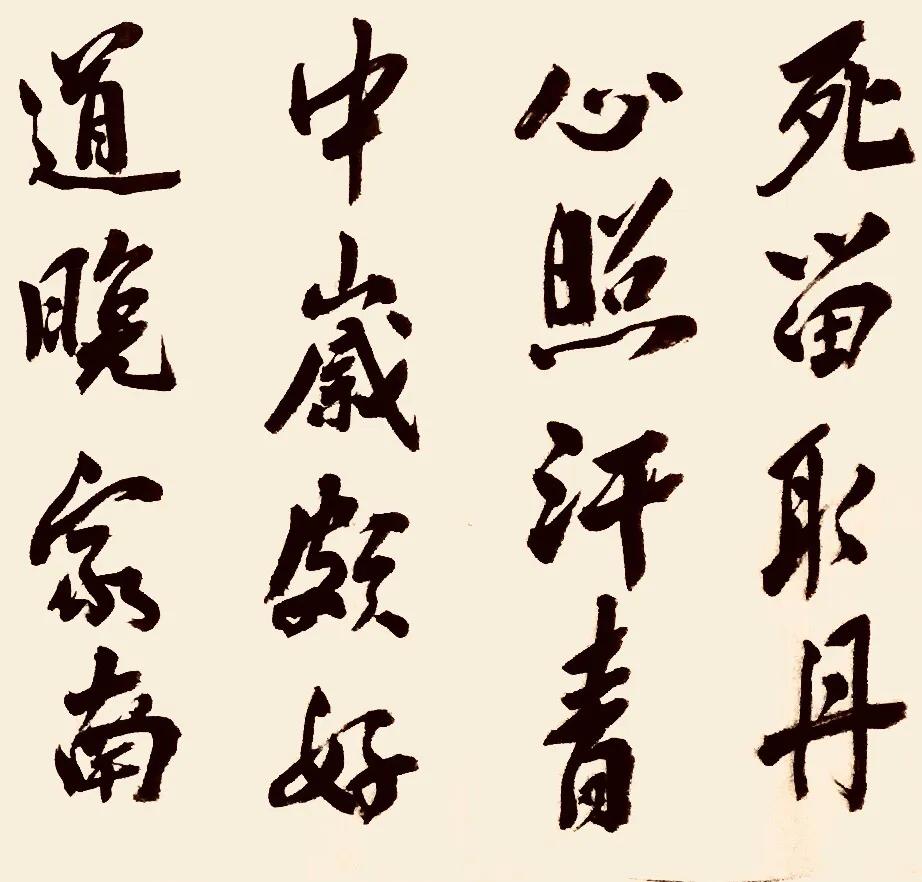 死留取丹
心照汗青
中歲頗好
道晚家南